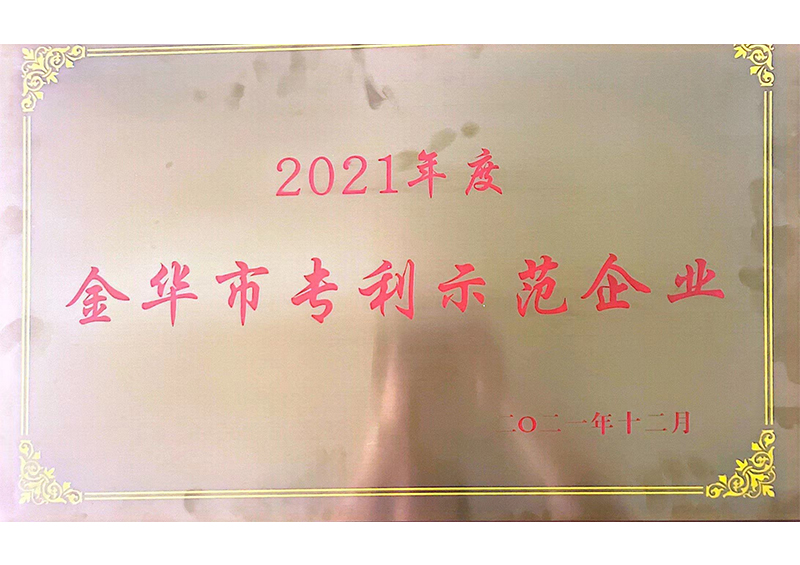 2021年度
金华市专利示范企业
二〇二一年十二月